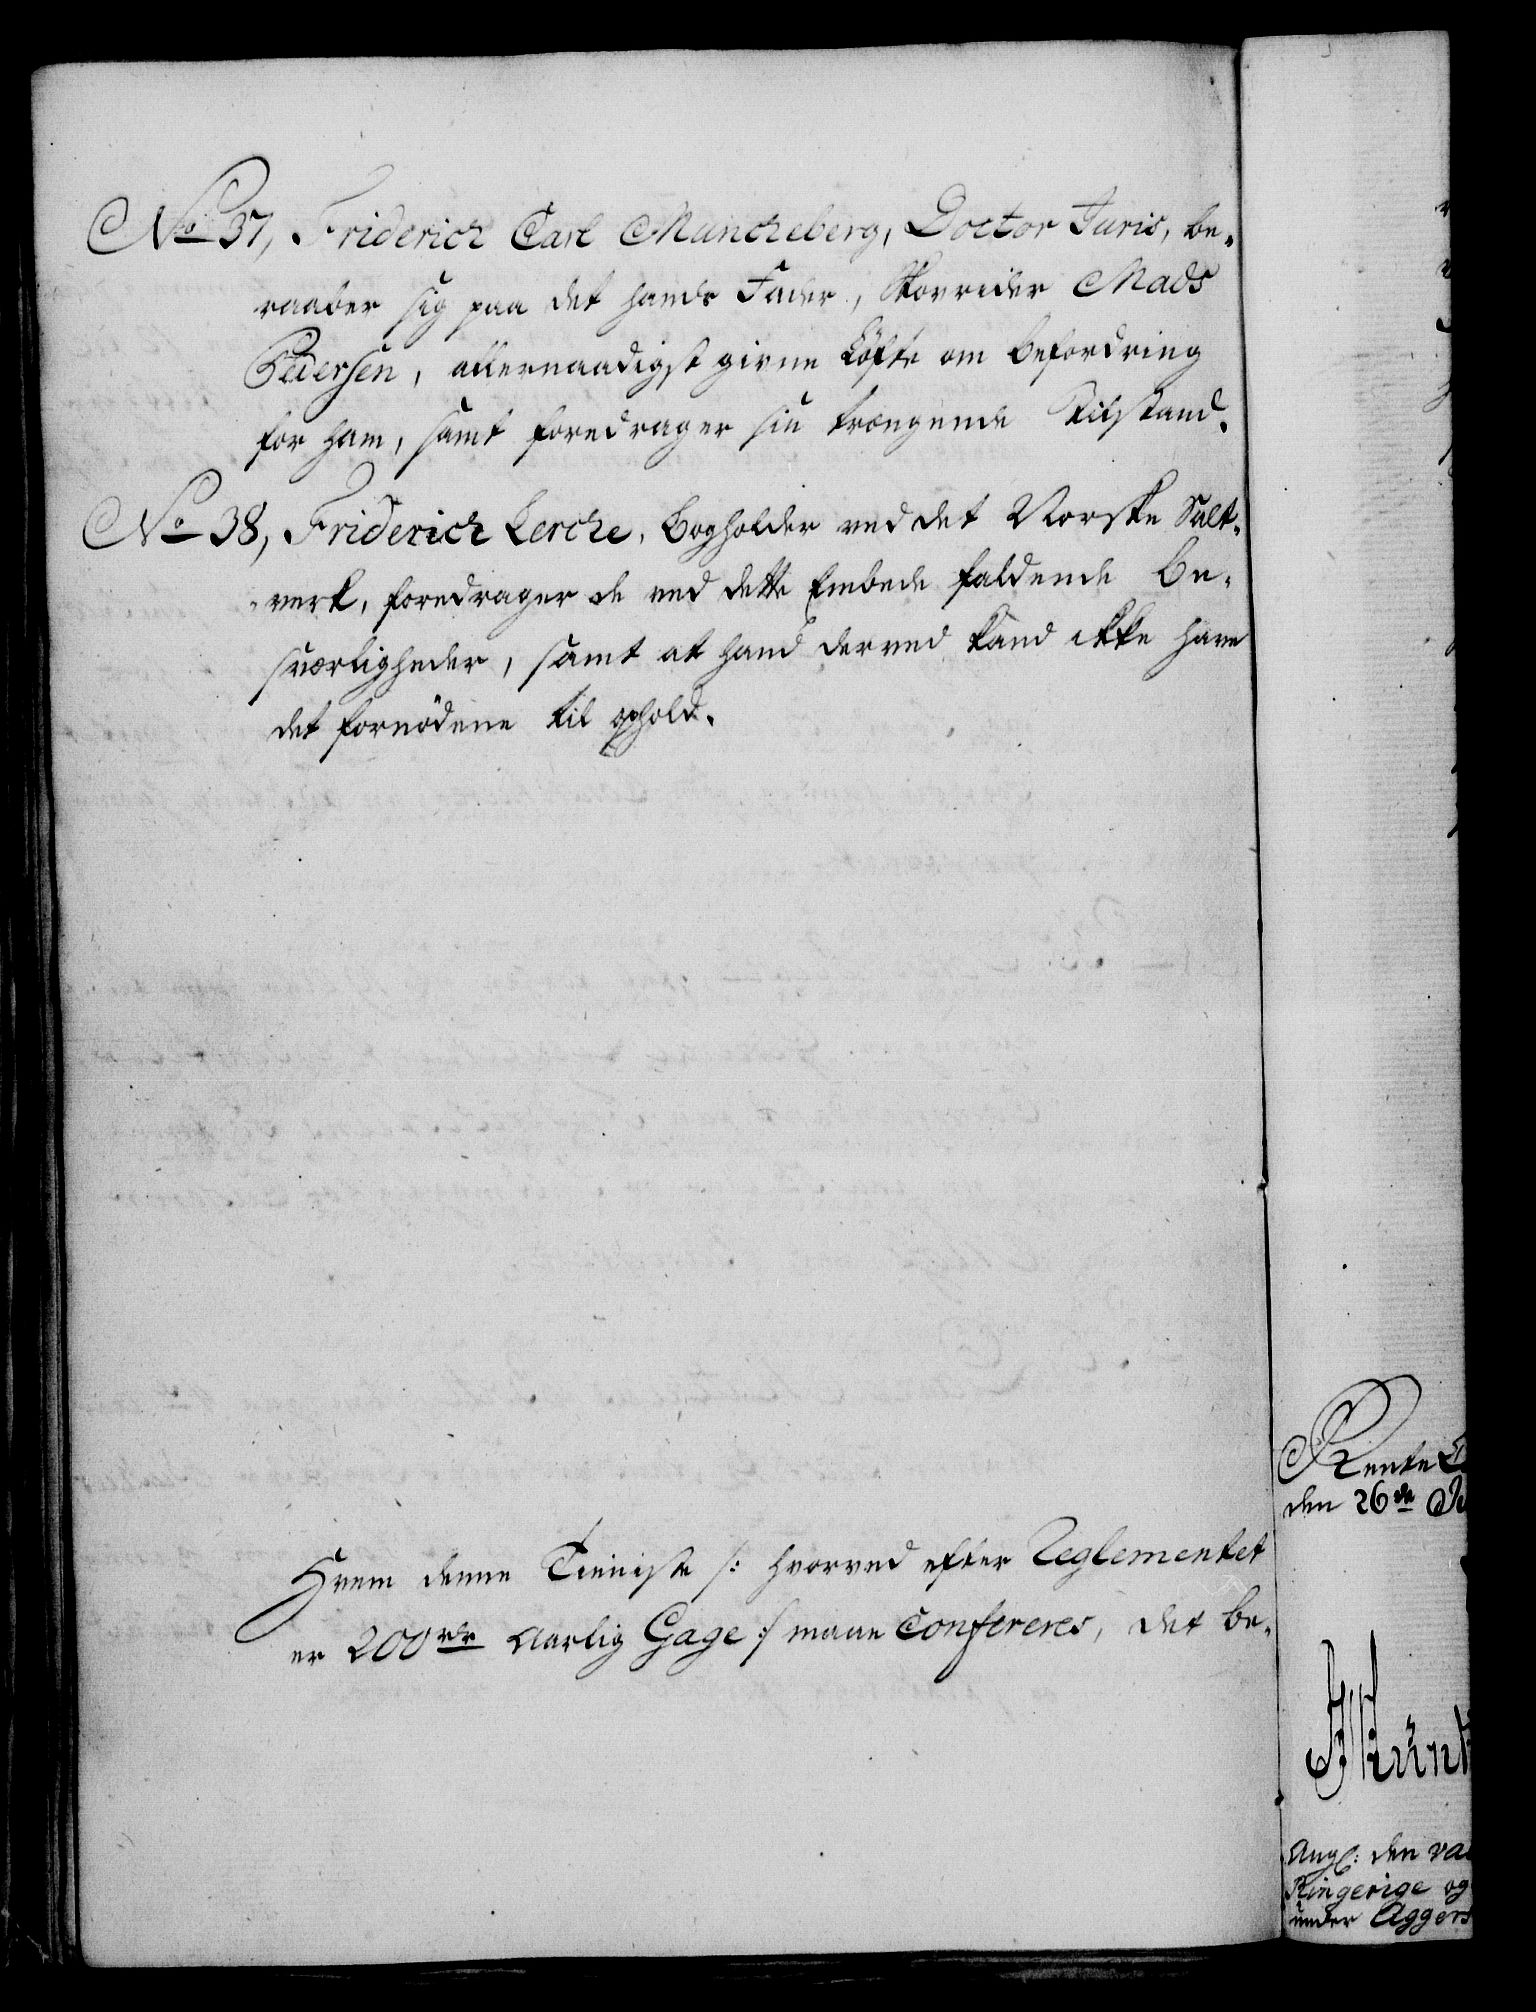 No 37, Friderich Carl Muncheberg, Doctor Juris, be-
raaber sig paa det hands Fader, Skovrider Mads
Pedersen, allernaadigst givne Löfte om befordring
for ham, samt foredrager sin trængende Tilstand.
No 38, Friderich Lerche, Bogholder ved det Norske Salt-
verk, foredrager de ved dette Embede faldende be-
sværligheder, samt at hand derved kand ikke have
det fornödene til ophold.
Hvem denne Tieniste /: hvorved efter Reglementet
er 200 rdr Aarlig Gage :/ maae Confereres, det be-
Rente
den 26de
Ang: den
Ringerige og
under Aggers